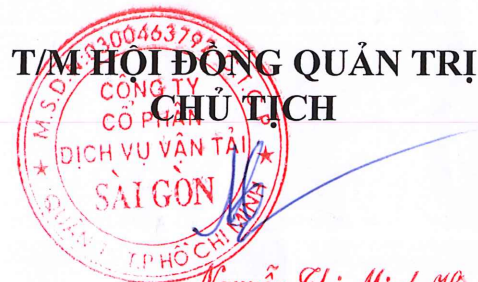 T/M HỘI ĐỒNG QUẢN TRỊ
CHỦ TỊCH
M.S.D.N:0300463792
C.T.C.P
CÔNG TY
CỔ PHẦN
DỊCH VỤ VẬN TẢI
SÀI GÒN
QUẬN 1 - T.P HỒ CHÍ MINH